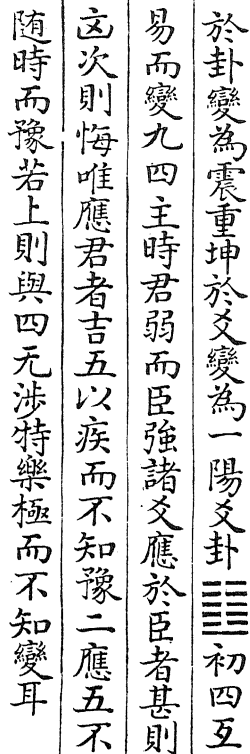 於卦變為震重坤於爻變為一陽爻卦䷏初四互
易而變九四主時君弱而臣強諸爻應於臣者甚則
凶次則悔唯應君者吉五以疾而不知豫二應五不
隨時而豫若上則與四无涉特樂極而不知變耳